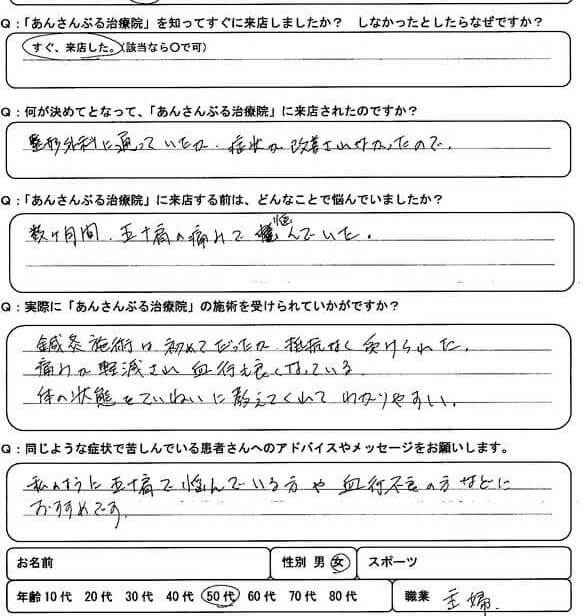 Q：「あんさんぶる治療院」を知ってすぐに来店しましたか？　しなかったとしたらなぜですか？
すぐ、来店した。（該当なら○で可）
Q：何が決めてとなって、「あんさんぶる治療院」に来店されたのですか？
整形外科に通っていたが、症状が改善されなかったので。
Q：「あんさんぶる治療院」に来店する前は、どんなことで悩んでいましたか？
数ヶ月間、五十肩の痛みで悩んでいた。
Q：実際に「あんさんぶる治療院」の施術を受けられていかがですか？
鍼灸施術は初めてだったが、抵抗なく受けられた。
痛みが軽減され血行も良くなっている。
体の状態をていねいに教えてくれてわかりやすい。
Q：同じような症状で苦しんでいる患者さんへのアドバイスやメッセージをお願いします。
私のように五十肩で悩んでいる方や血行不良の方などに
おすすめです。
お名前　性別 男 女　スポーツ
年齢 10代　20代　30代　40代　50代　60代　70代　80代　職業　主婦